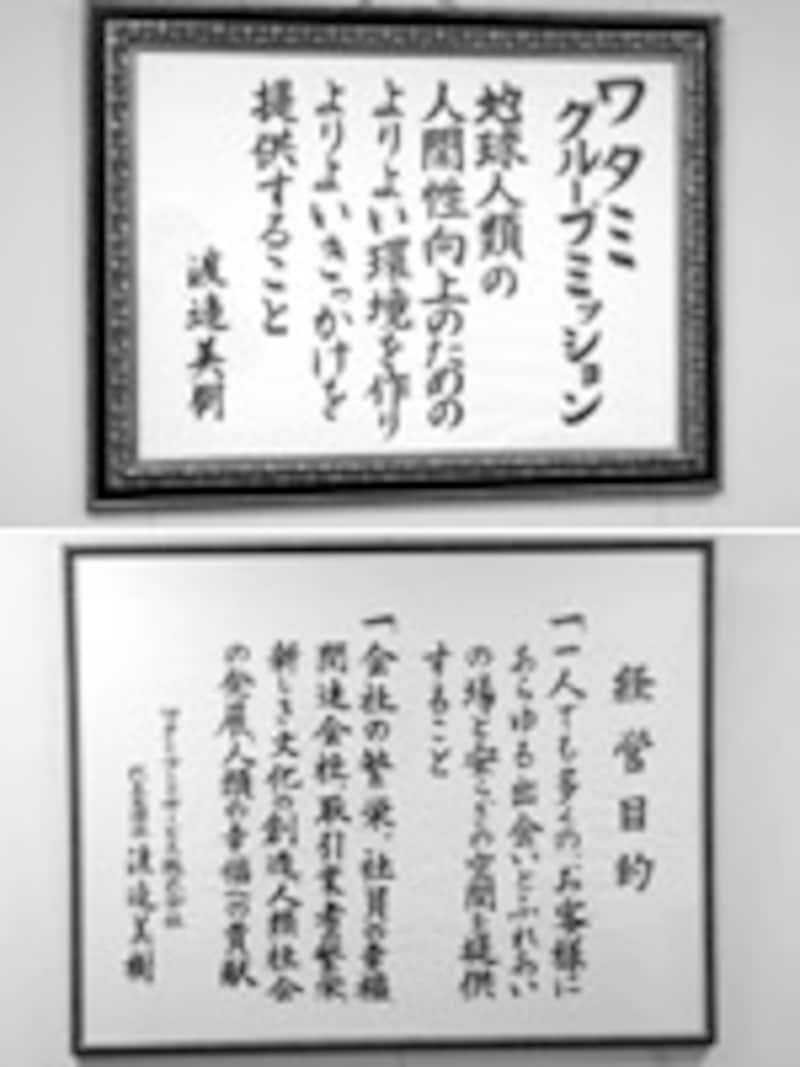 ワタミ
グループミッション
地球人類の
人間性向上のための
よりよい環境を作り
よりよいきっかけを
提供すること
渡邉美樹
経営目的
一、一人でも多くのお客様に
あらゆる出会いとふれあい
の場と安らぎの空間を提供
すること
一、会社の繁栄、社員の幸福
関連会社、取引業者の繁栄
新しき文化の創造、人類社会
の発展、人類の幸福への貢献
渡邉美樹